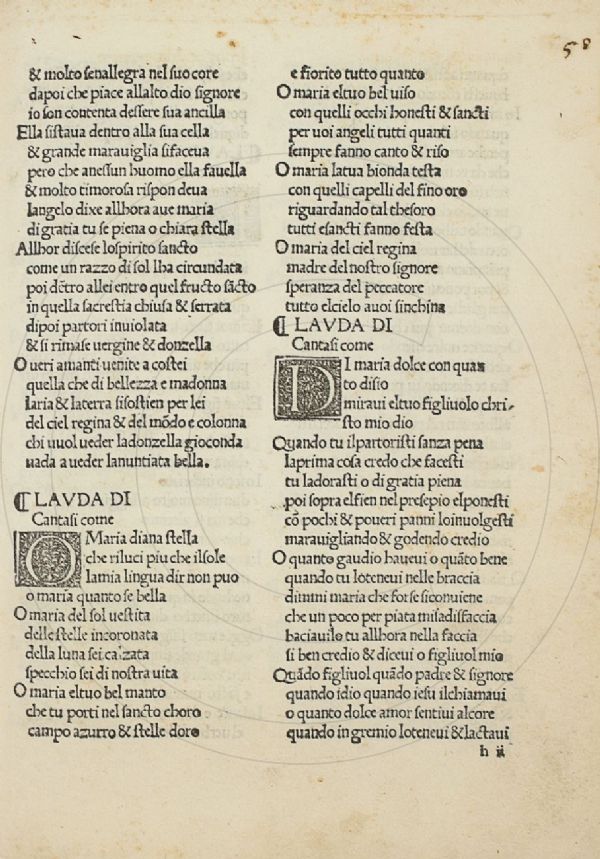 58
& molto senallegra nel suo core
dapoi che piace allalto dio signore
io son contenta dessere sua ancilla
Ella sistaua dentro alla sua cella
& grande marauiglia sifaceua
pero che anessun huomo ella fauella
& molto timorosa rispon deua
langelo dixe allhora aue maria
di gratia tu se piena o chiara stella
Allhor discese lospirito sancto
come un razzo di sol lha circundata
poi dētro allei entro quel fructo sācto
in quella sacrestia chiusa & serrata
dipoi partori inuiolata
& si rimase uergine & donzella
O ueri amanti uenite a costei
quella che di bellezza e madonna
laria & laterra sisostien per lei
del ciel regina & del mōdo e colonna
chi uuol ueder ladonzella gioconda
uada a ueder lanuntiata bella.
¶ LAVDA DI
Cantasi come
O Maria diana stella
che riluci piu che ilsole
lamia lingua dir non puo
o maria quanto se bella
O maria del sol uestita
delle stelle incoronata
della luna sei calzata
specchio sei di nostra uita
O maria eltuo bel manto
che tu porti nel sancto choro
campo azurro & stelle doro
e fiorito tutto quanto
O maria eltuo bel uiso
con quelli occhi honesti & sancti
per uoi angeli tutti quanti
sempre fanno canto & riso
O maria latua bionda testa
con quelli capelli del fino oro
riguardando tal thesoro
tutti esancti fanno festa
O maria del ciel regina
madre del nostro signore
speranza del peccatore
tutto elcielo auoi sinchina
¶ LAVDA DI
Cantasi come
DI maria dolce con quan
to disio
miraui eltuo figliuolo chri-
sto mio dio
Quando tu ilpartoristi sanza pena
laprima cosa credo che facesti
tu ladorasti o di gratia piena
poi sopra elfien nel presepio elponesti
cō pochi & poueri panni loinuolgesti
marauigliando & godendo credio
O quanto gaudio haueui o quāto bene
quando tu loteneui nelle braccia
dimmi maria che forse siconuiene
che un poco per piata misadisfaccia
baciauilo tu allhora nella faccia
si ben credio & diceui o figliuol mio
Quādo figliuol quādo padre & signore
quando idio quando iesu ilchiamaui
o quanto dolce amor sentiui alcore
quando in gremio loteneui & lactaui
h ii